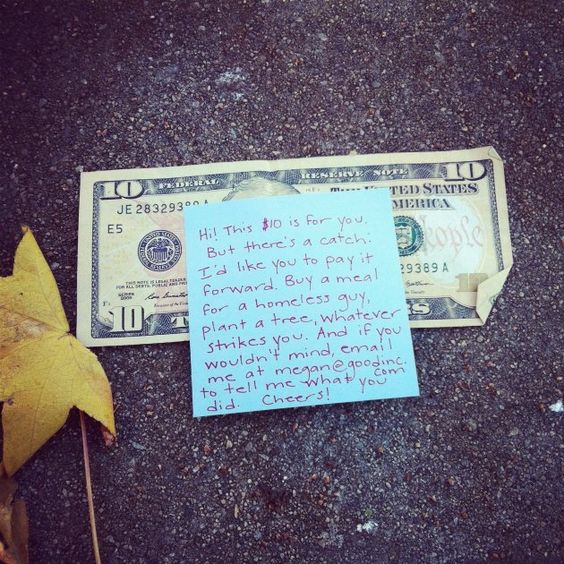 10 FEDERAL RESERVE NOTE 10
TED STATES
MERICA
JE 28329389
E5
eople
29389 A
THIS NOTE IS LEGAL TENDER
FOR ALL DEBTS, PUBLIC AND PRI
SERIES
2009
10
10
Hi! This $10 is for you.
But there's a catch.
I'd like you to pay it
forward. Buy a meal
for a homeless guy,
plant a tree, whatever
strikes you. And if you
wouldn't mind, email
me at megan@goodinc.
com
to tell me what you
did. Cheers!